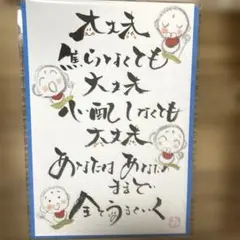 大丈夫
焦らなくても
大丈夫
心配しなくても
大丈夫
あなたは あなたの
ままで
全てうまくいく